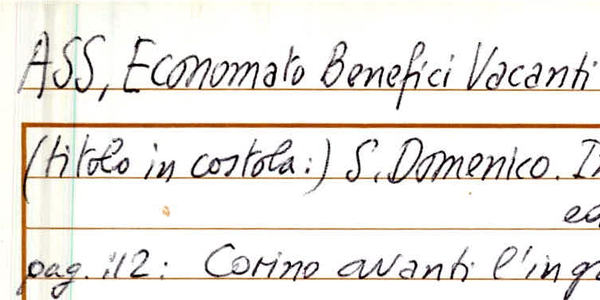 ASS, Economato Benefici Vacanti
(titolo in costola:) S. Domenico.
pag. 112: Corino avanti l'ingr